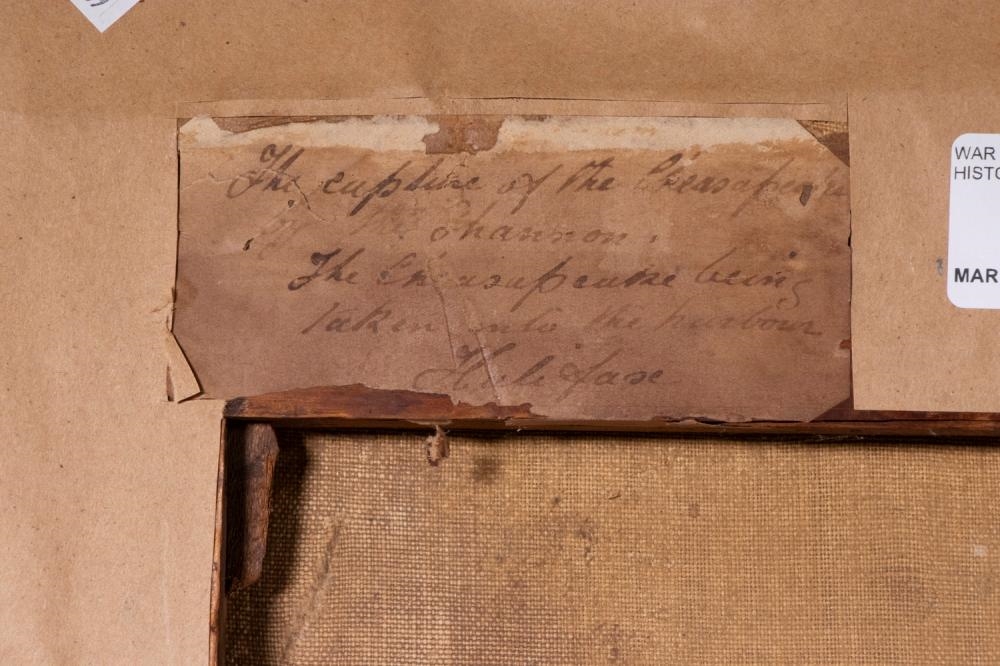 The capture of the Cheasapeake
by the Shannon.
The Cheasapeake being
taken into the harbour
Halifax
WAR
HISTO
MAR